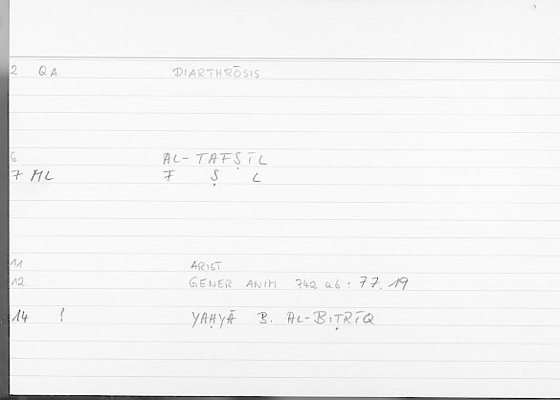 2 QA DIARTHRŌSIS
6 AL-TAFṢĪL
7 ML F Ṣ L
11 ARIST
12 GENER ANIM 742 a6 : 77.19
14 ! YAḤYĀ B. AL-BIṬRĪQ